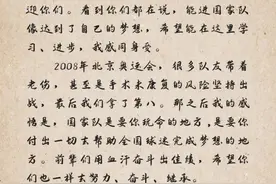 迎你们。看到你们都在说，能进国家队
像达到了自己的梦想，希望能在这里学
习、进步，我感同身受。
2008年北京奥运会，很多队友带着
老伤，甚至是手术未康复的风险坚持出
战，最后我们拿了第八。那之后我的感
悟是，国家队是要你玩命的地方，是要你
付出一切去帮助全国球迷完成梦想的地
方。前辈们用血汗奋斗出佳绩，希望你
们也一样去努力、奋斗、继承。